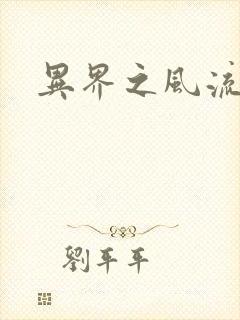 異界之風流
劉平平